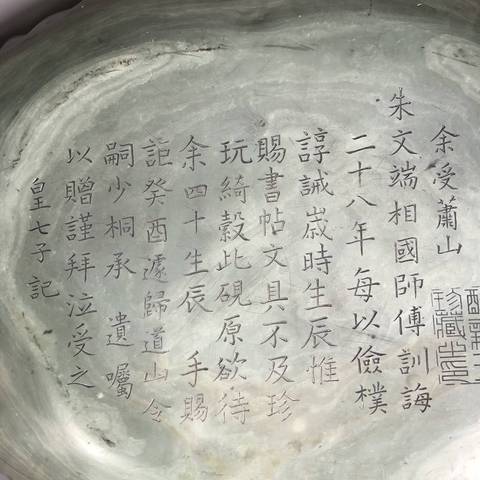 余受蕭山
朱文端相國師傅訓誨
二十八年每以儉樸
諄誡嵗時生辰惟
賜書帖文具不及珍
玩綺縠此硯原欲待
余四十生辰 手賜
詎癸酉遽歸道山令
嗣少桐承 遺囑
以贈謹拜泣受之
皇七子記
珍藏之印